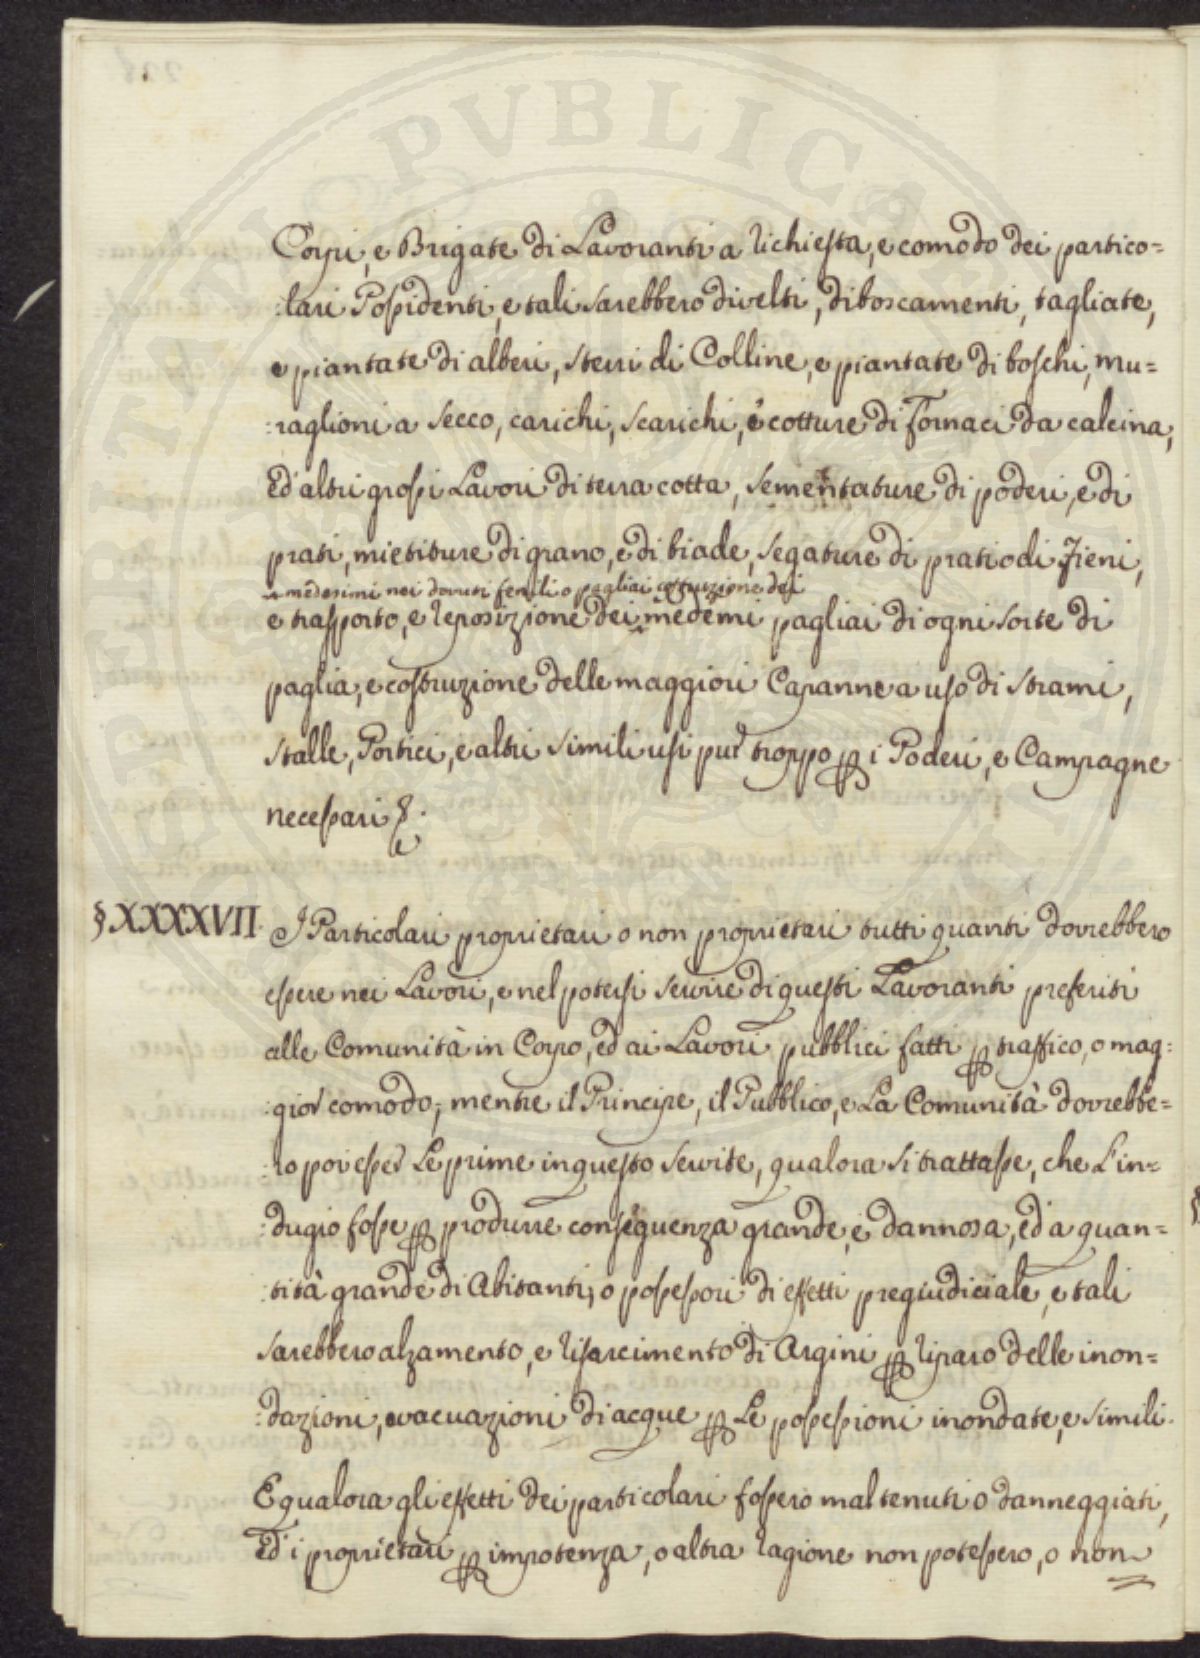 PROSPERITATI PVBLICAE
Corpi, e Brigate di Lavoranti a richiesta, e comodo dei partico=
:lari Possidenti, e tali sarebbero divelti, diboscamenti, tagliate,
e piantate di alberi, sterri di Colline, e piantate di boschi, mu=
:raglioni a secco, carichi, scarichi, e cotture di Fornaci da calcina,
ed altri grossi Lavori di terra cotta, sementature di poderi, e di
prati, mietiture di grano, e di biade, segature di prati o di Fieni,
medesimi nei dovuti fenili o pagliai costruzione dei
e trasporto, e reposizione dei medemi pagliai di ogni sorte di
paglia, e costruzione delle maggiori Capanne a uso di strami,
stalle, Portici, e altri simili usi pur troppo p i Poderi, e Campagne
necessari &.
§XXXXVII. I Particolari proprietari o non proprietari tutti quanti dovrebbero
essere nei Lavori, e nel potersi servire di questi Lavoranti preferiti
alle Comunità in Corpo, ed ai Lavori pubblici fatti p traffico, o mag:
:gior comodo; mentre il Principe, il Pubblico, e La Comunità dovrebbe=
:ro poi esser Le prime in questo servite, qualora si trattasse, che L'in=
:dugio fosse p produrre conseguenza grande, e dannosa, ed a quan=
:tità grande di Abitanti, o possessori di effetti pregiudiciale, e tali
sarebbero alzamento, e risarcimento di Argini p riparo delle inon=
:dazioni, evacuazioni di acque p Le possessioni inondate, e simili.
E qualora gli effetti dei particolari fossero mal tenuti o danneggiati,
ed i proprietari p impotenza, o altra ragione non potessero, o non